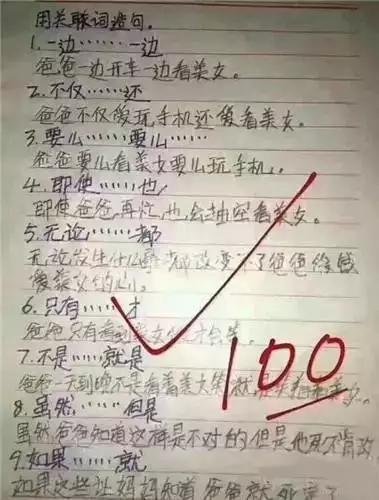 用关联词造句.
1.一边……一边
爸爸一边开车一边看美女。
2.不仅……还
爸爸不仅爱玩手机还爱看美女。
3.要么……要么……
爸爸要么看美女要么玩手机。
4.即使……也
即使爸爸再忙,也会抽空看美女。
5.无论……都
无论发生什么都改变不了爸爸
爱美女的心。
6.只有……才
爸爸只有看到美女 才会笑。
7.不是……就是
爸爸一天到晚不是看着美女笑就是
8.虽然……但是
虽然爸爸知道这样是不对的但是他
9.如果……就
如果这些让妈妈知道爸爸就死
100